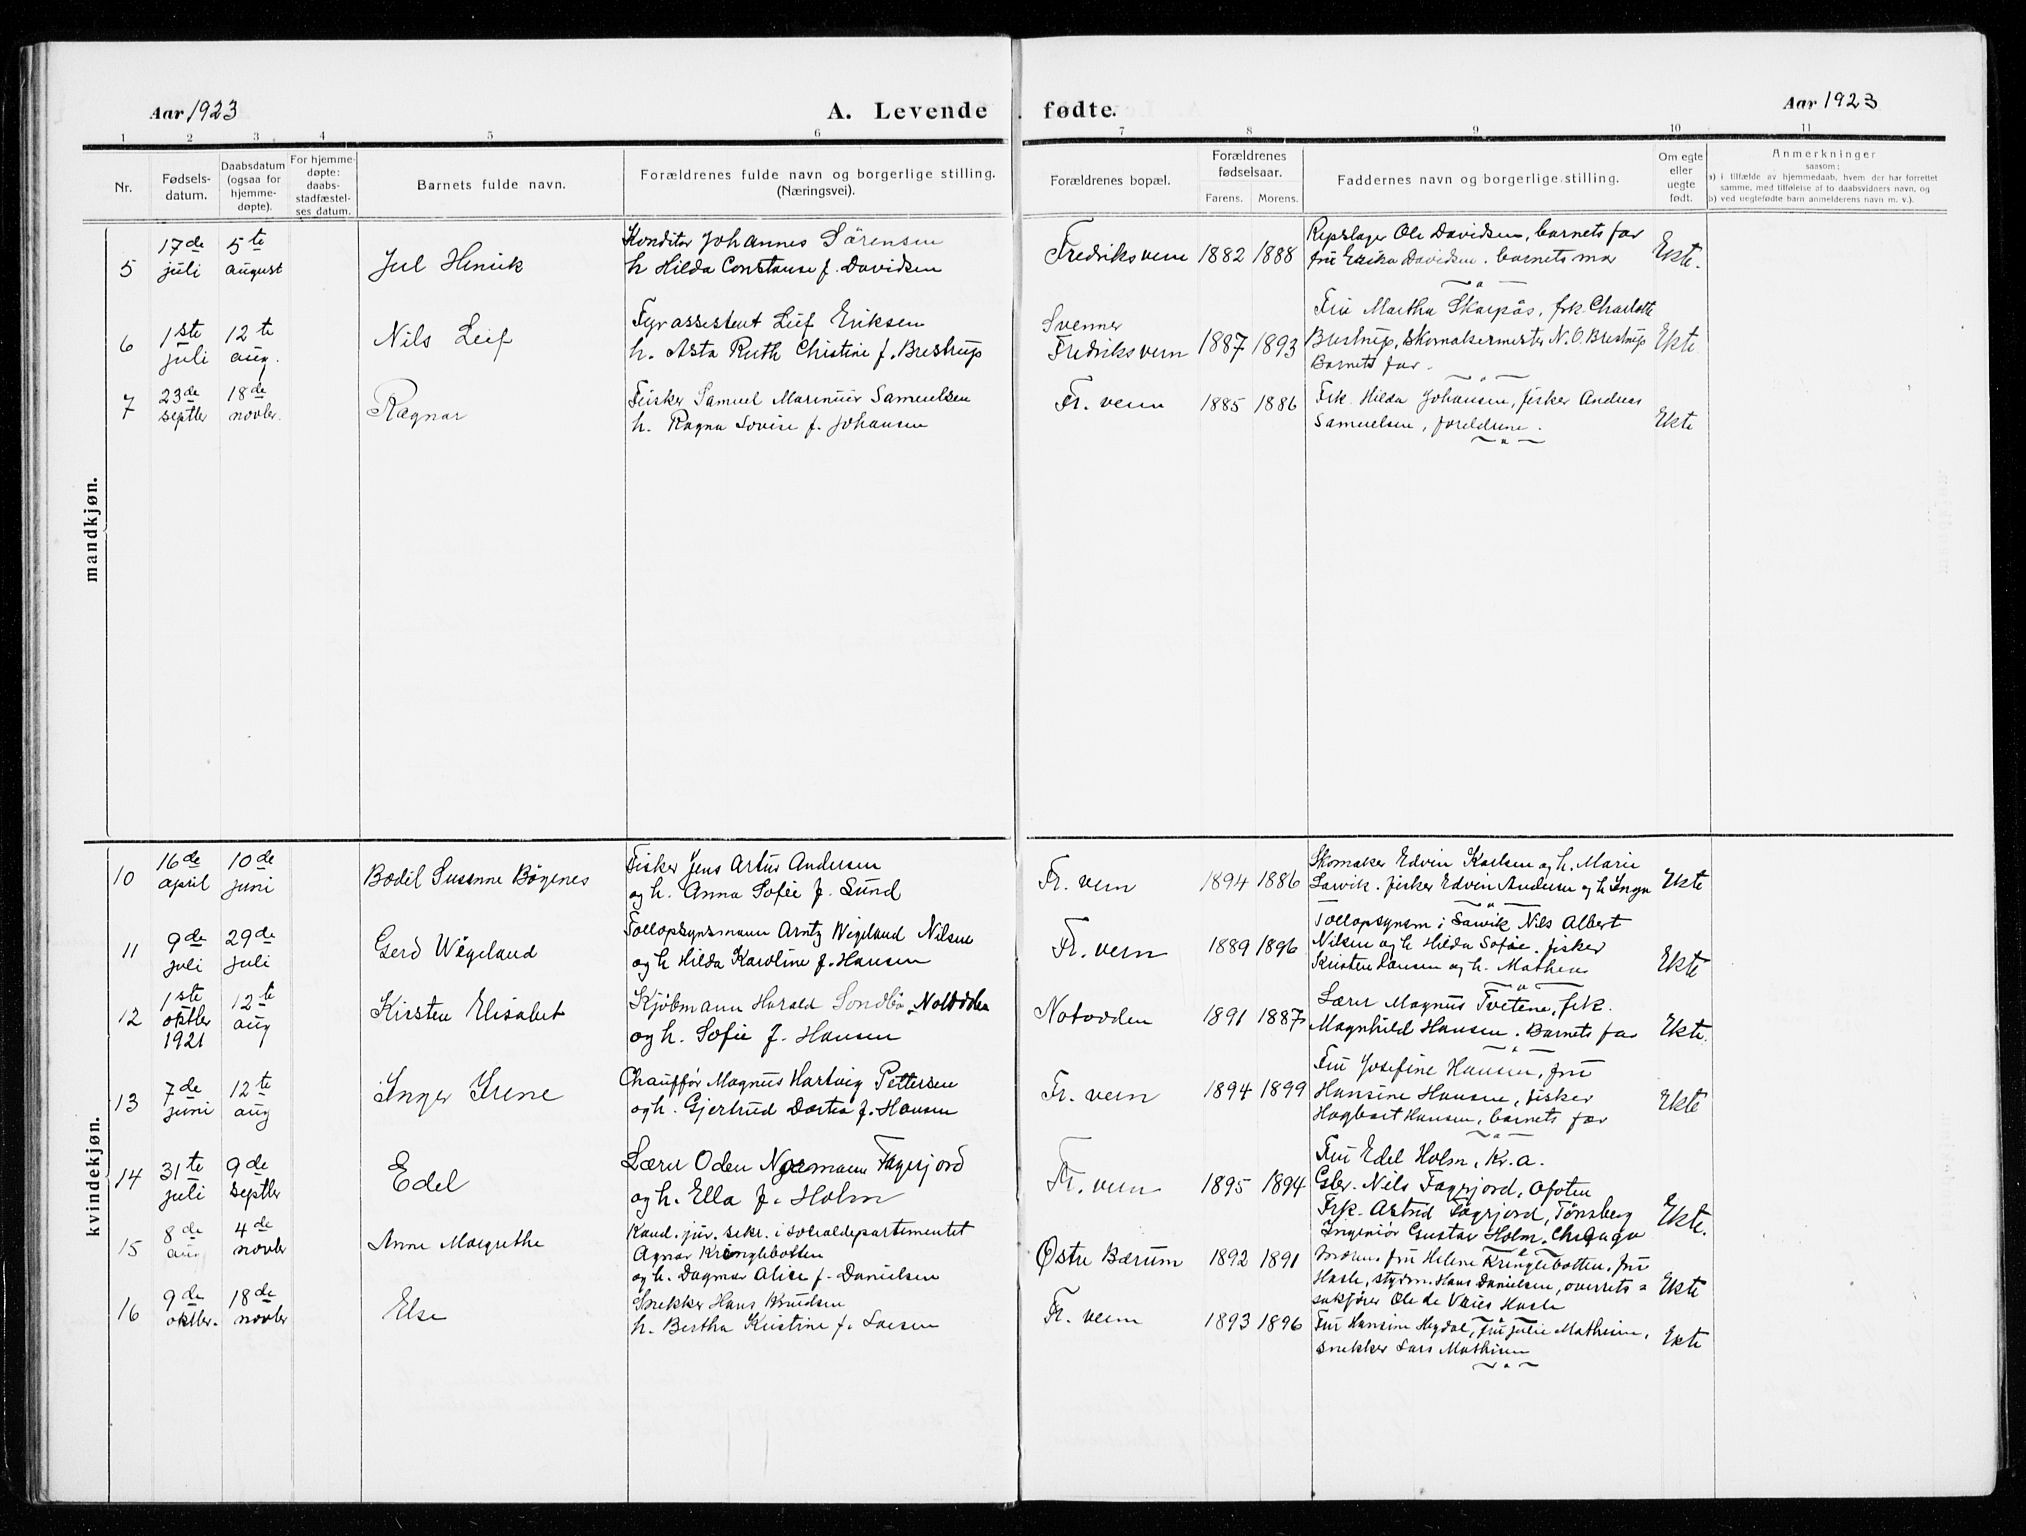 Aar 1923
A. Levende fødte.
Aar 1923
1 2 3 4 5 6 7 8 9 10 11
Nr.
Fødsels-
datum.
Daabsdatum
(ogsaa for
hjemme-
døpte).
For hjemme-
døpte:
daabs-
stadfæstel-
ses datum.
Barnets fulde navn.
Forældrenes fulde navn og borgerlige stilling.
(Næringsvei).
Forældrenes bopæl.
Forældrenes
fødselsaar.
Farens. Morens.
Faddernes navn og borgerlige stilling.
Om egte
eller
uegte
født.
Anmerkninger
saasom:
a) i tilfælde av hjemmedaab, hvem der har forrettet
samme, med tilføielse af to daabsvidners navn, og
b) ved uegtefødte barn anmelderens navn m. v.).
mandkjøn.
5
17de
juli
5te
august
Jul Henrik
Konditor Johannes Sørensen
h Hilda Constanse f. Davidsen
Fredriksvern
1882 1888
Repslager Ole Davidsen, barnets far
fru Erika Davidsen. barnets mor
Ekte.
6
1ste
juli
12te
aug.
Nils Leif
Fyrassistent Leif Eriksen
h. Asta Ruth Christine f. Brestrup
Svenner
Fredriksvern
1887 1893
Fru Martha Skarpås, frk. Charlotte
Brestrup, Skomakermester N. O. Brestrup
Barnets far.
Ekte
7
23de
septbr
18de
novbr.
Ragnar
Fisker Samuel Marinius Samuelsen
h. Ragna Lovise f. Johansen
Fr. vern
1885 1886
Frk. Hilda Johansen, fisker Andreas
Samuelsen, foreldrene.
Ekte
kvindekjøn.
10
16de
april
10de
juni
Bodil Susanne Bøgenes
Fisker Jens Artur Andersen
og h. Anna Sofie f. Lund
Fr. vern
1894 1886
Skomaker Edvin Karlsen og h. Marie
Larvik. fisker Edvin Andersen og h Inga
Ekte
11
9de
juli
29de
juli
Gerd Wigeland
Tollopsynsmann Arntz Wigeland Nilsen
og h Hilda Karoline f. Hansen
Fr. vern
1889 1896
Tollopsynsm i Larvik Nils Albert
Nilsen og h Hilda Sofie. fisker
Kristen Larsen og h. Mathea
Ekte
12
1ste
oktbr
1921
12te
aug
Kirsten Elisabet
Kjøbmann Harald Sondbø, Notodden
og h. Sofie f. Hansen
Notodden
1891 1887
Lærer Magnus Tvetene, frk.
Magnhild Hansen. Barnets far
Ekte.
13
7de
juni
12te
aug
Inger Irene
Chauffør Magnus Hartvig Pettersen
og h. Gjertrud Dortea f. Hansen
Fr. vern
1894 1899
Fru Josefine Hansen, fru
Hansine Hansen, fisker
Hagbart Hansen, barnets far
Ekte
14
31te
juli
9de
septbr
Edel
Lærer Oden Normann Fagerjord
og h. Ella f. Holm
Fr. vern
1895 1894
Fru Edel Holm, Kr.a.
Gbr. Nils Fagerjord, Ofoten
Frk. Astrid Fagerjord, Tønsberg
Ingeniør Gustav Holm, Chicago
Ekte.
15
8de
aug
4de
novbr
Anne Margrethe
Kand. jur. sekr. i sosialdepartementet
Agnar Kringlebotten
og h. Dagmar Alice f. Danielsen
Østre Bærum
1892 1891
Moren, fru Helene Kringlebotten, fru
Hasle, styrm. Hans Danielsen, overrets=
sakfører Ole de Vries Hasle
Ekte
16
9de
oktbr.
18de
novbr
Else
Snekker Hans Knudsen
h. Bertha Kristine f. Larsen
Fr. vern
1893 1896
Fru Hansine Heydal, fru Julie Mathisen,
snekker Lars Mathisen
Ekte